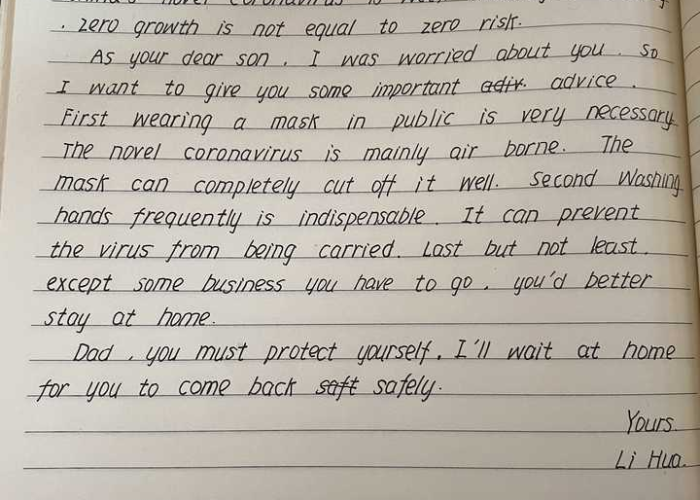 novel coronavirus is
. zero growth is not equal to zero risk.
As your dear son, I was worried about you. So
I want to give you some important adiv. advice.
First wearing a mask in public is very necessary.
The novel coronavirus is mainly air borne. The
mask can completely cut off it well. Second Washing
hands frequently is indispensable. It can prevent
the virus from being carried. Last but not least.
except some business you have to go, you'd better
stay at home.
Dad, you must protect yourself. I'll wait at home
for you to come back saft safely.
Yours.
Li Hua.